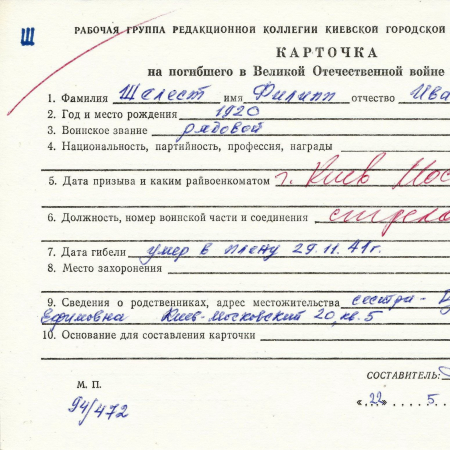 Ш
РАБОЧАЯ ГРУППА РЕДАКЦИОННОЙ КОЛЛЕГИИ КИЕВСКОЙ ГОРОДСКОЙ
КАРТОЧКА
на погибшего в Великой Отечественной войне
1. Фамилия Шалест имя Филипп отчество Ива
2. Год и место рождения 1920
3. Воинское звание рядовой
4. Национальность, партийность, профессия, награды
5. Дата призыва и каким райвоенкоматом г. Киев Мос
6. Должность, номер воинской части и соединения стрело
7. Дата гибели умер в плену 29.11.41г.
8. Место захоронения
9. Сведения о родственниках, адрес местожительства сестра -
Ефимовна Киев-Московский 20, кв. 5
10. Основание для составления карточки
СОСТАВИТЕЛЬ:
М. П.
94/472
„22" 5